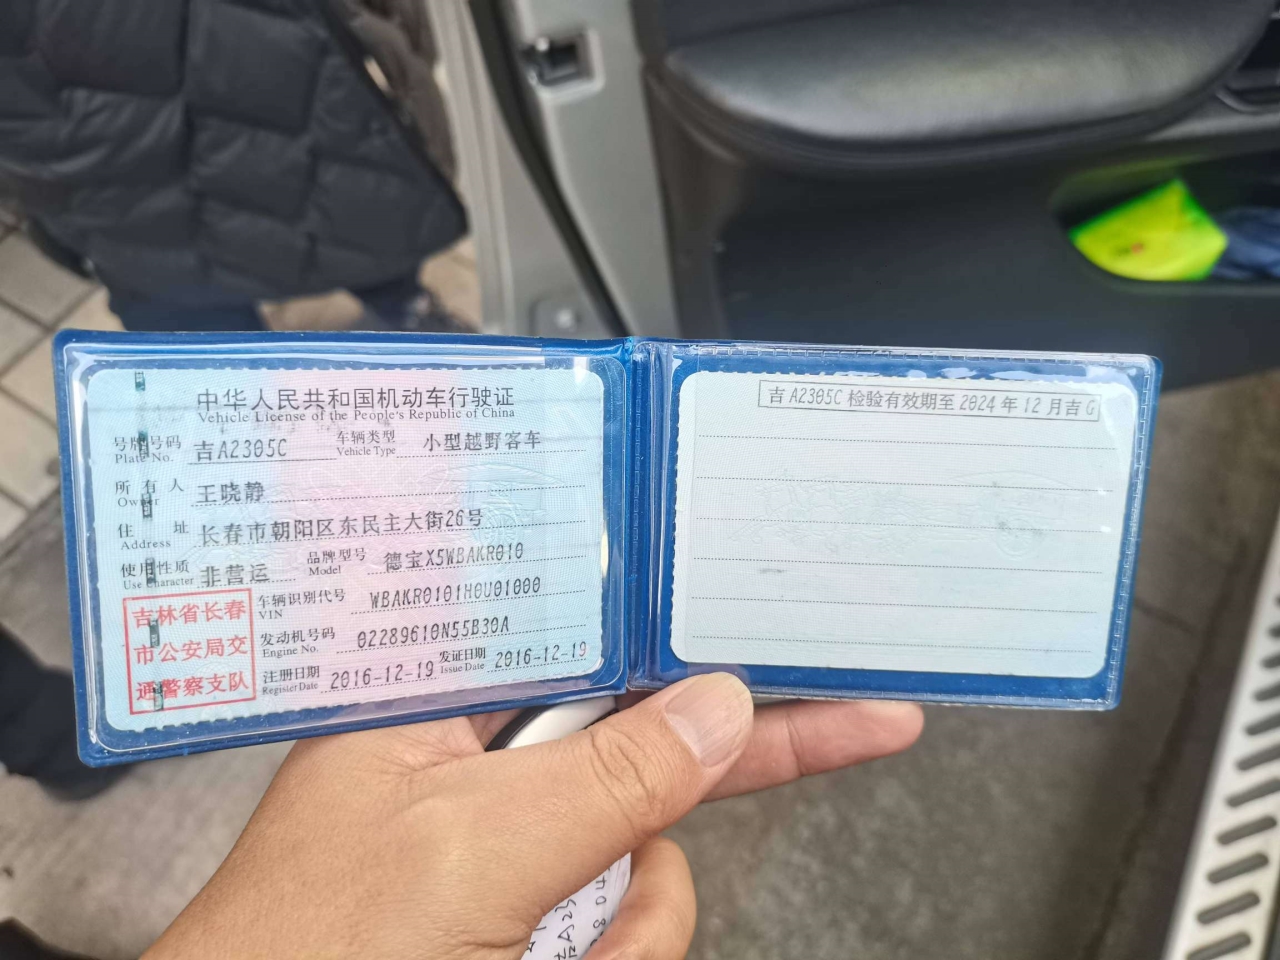 中华人民共和国机动车行驶证
Vehicle License of the People's Republic of China
号牌号码 吉A2305C 车辆类型 小型越野客车
Plate No. Vehicle Type
所有人 王晓静
Owner
住址 长春市朝阳区东民主大街26号
Address
使用性质 非营运 品牌型号 德宝X5WBAKR010
Use Character Model
车辆识别代号 WBAKR0101H0U01000
VIN
发动机号码 02289610N55B30A
Engine No.
注册日期 2016-12-19 发证日期 2016-12-19
Register Date Issue Date
吉林省长春
市公安局交
通警察支队
吉A2305C 检验有效期至 2024 年 12 月吉G